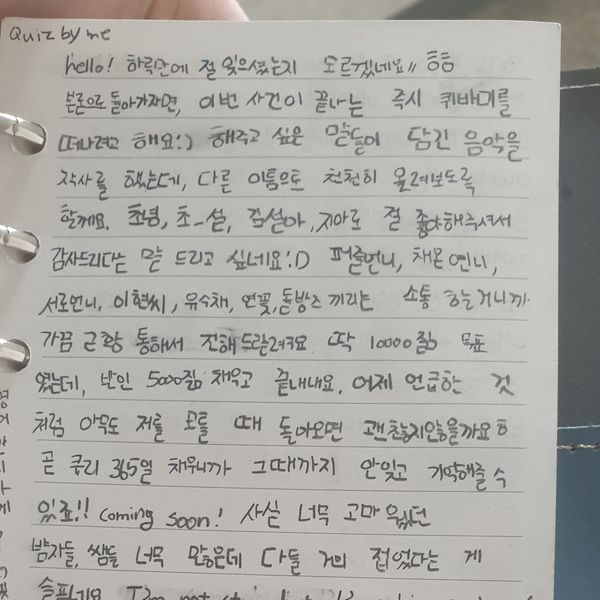 Quiz by me
hello! 하룻만에 절 잊으셨는지 모르겠네요〃 흠흠
본론으로 돌아가자면, 이번 사건이 끝나는 즉시 퀴바미를
떠나려고 해요:) 해주고 싶은 말들이 담긴 음악을
작사를 했는데, 다른 이름으로 천천히 올려보도록
할께요. 초녕, 초_설, 김설아, 지아로 절 좋아해주셔서
감사드리다는 말 드리고 싶네요:D 퍼즐언니, 채몬언니,
서로언니, 이현씨, 유수채, 연꽃, 돋방즈 끼리는 소통 하는거니까
가끔 근황 통해서 전해드릴려구요. 딱 10000질 목표
였는데, 반인 5000질 채우고 끝내네요. 어제 언급한 것
처럼 아무도 저를 모를 때 돌아오면 괜찮지않을까요ㅎ
곧 큐리 365일 채우니까 그때까지 안잊고 기억해줄 수
있죠!! coming soon! 사실 너무 고마웠던
뱜자들, 쌤들 너무 많은데 다들 거의 접었다는 게
슬프네요. I'm not